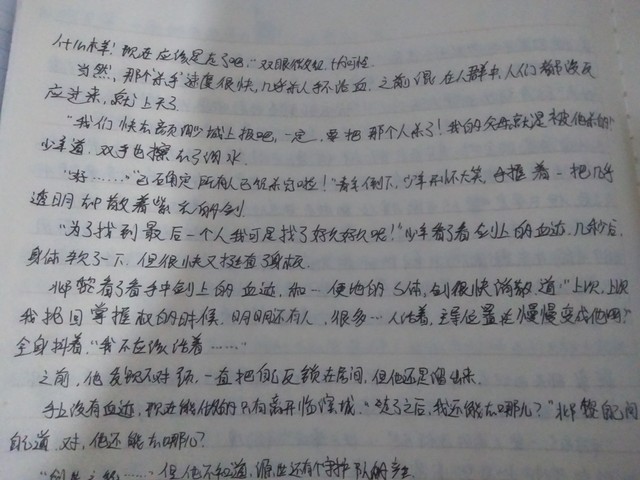 什么样！现在应该是左了吧。”双眼微红，
当然，那个杀手速度很快，几乎杀人手不沾血，之前混在人群中，人们都没反
应过来，就上天了
“我们快去音风少城上报吧，一定要把那个人杀了！我的父母就是被他杀的”
少年道，双手也擦了了泪水
“好……”“已石角定所有人已经杀完啦！”青年倒下，少年开怀大笑，手握着一把几乎
透明却散着紫光的剑
“为了找到最后一个人我可是找了好久好久呢！”少年看了看剑上的血迹，几秒后，
身体软了一下，但很快又挺直了身板
看了看手中剑上的血迹，和一便地的尸体，剑很快消散 道：“上次，上次
我抢回掌握权的时候，明明还有人，很多…人活着，主导位置是慢慢变成他啊？”
全身抖着，“我不应该活着……”
之前，他发现不对劲，一直把自己反锁在房间，但他还是溜出来
手上没有血迹，现在能做的只有离开临深城，“走了之后，我还能去哪儿？”自己问
自己道，对，他还能去哪儿？
但他不知道，还有个守护队的产生